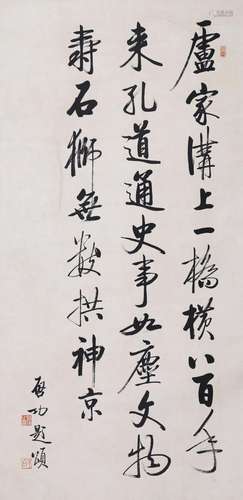 盧家溝上一橋橫八百年
來孔道通史事如塵文物
壽石獅無數拱神京
啟功題頌